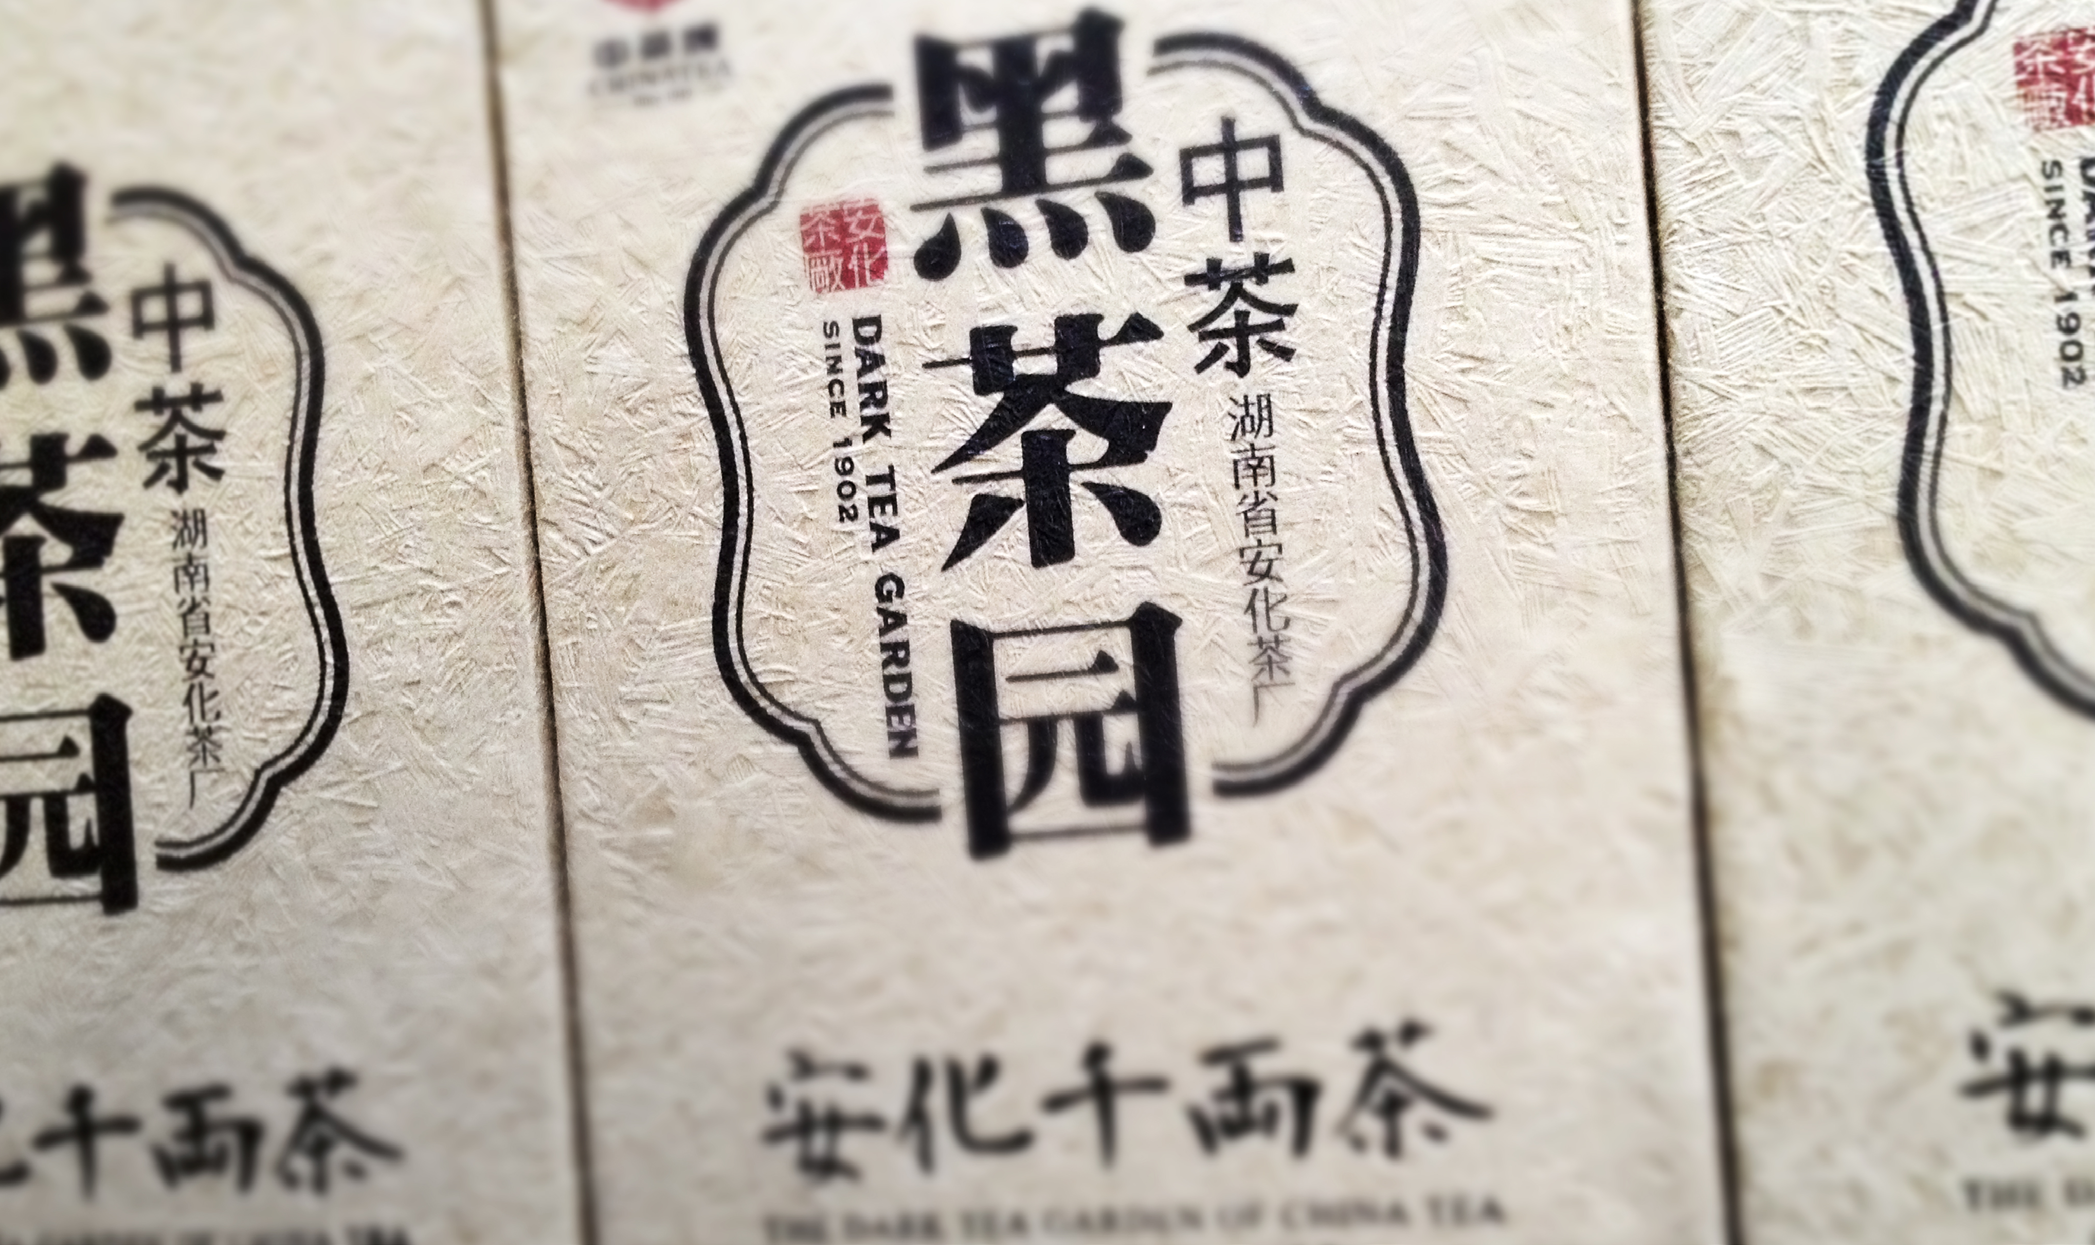 黑
中茶
湖南省安化茶厂
茶
园
安化千両茶
中茶
湖南省安化茶厂
黑茶园
安化
茶廠
DARK TEA GARDEN
SINCE 1902
安化千両茶
THE DARK TEA GARDEN OF CHINA TEA
SINCE 1902
安
THE